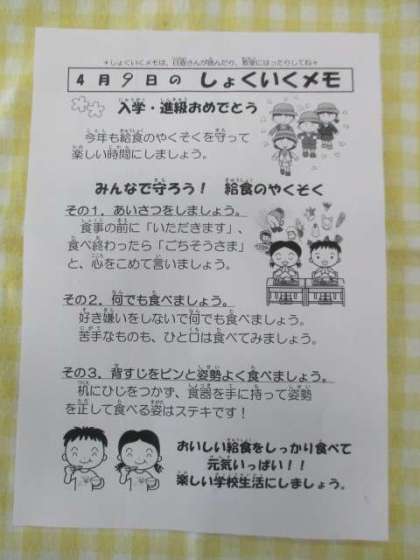 ＊しょくいくメモは、日直さんが読んだり、教室にはったりしてね＊
4月9日の しょくいくメモ
入学・進級おめでとう
今年も給食のやくそくを守って
楽しい時間にしましょう。
みんなで守ろう！ 給食のやくそく
その1．あいさつをしましょう。
食事の前に「いただきます」、
食べ終わったら「ごちそうさま」
と、心をこめて言いましょう。
その2．何でも食べましょう。
好き嫌いをしないで何でも食べましょう。
苦手なものも、ひと口は食べてみましょう。
その3．背すじをピンと姿勢よく食べましょう。
机にひじをつかず、食器を手に持って姿勢
を正して食べる姿はステキです！
おいしい給食をしっかり食べて
元気いっぱい！！
楽しい学校生活にしましょう。